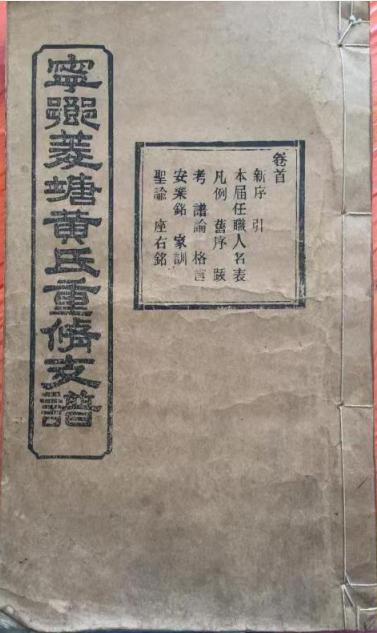 寧鄉菱塘黄氏重脩支譜
卷首
新序 引
本届任職人名表
凡例 舊序 跋
考 譜論 格言
安業銘 家訓
聖諭 座右銘